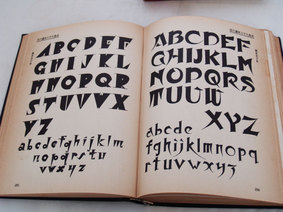 ABCDEF
GHIJKL
MNOPQR
STUVVX
YZ
abcdefghijklm
nopqrstu
vwxyz
ABCDEF
GHIJKLM
NOPQRS
TUUW
XYZ
abcde
fghijklmnopq
rstuvwxyz